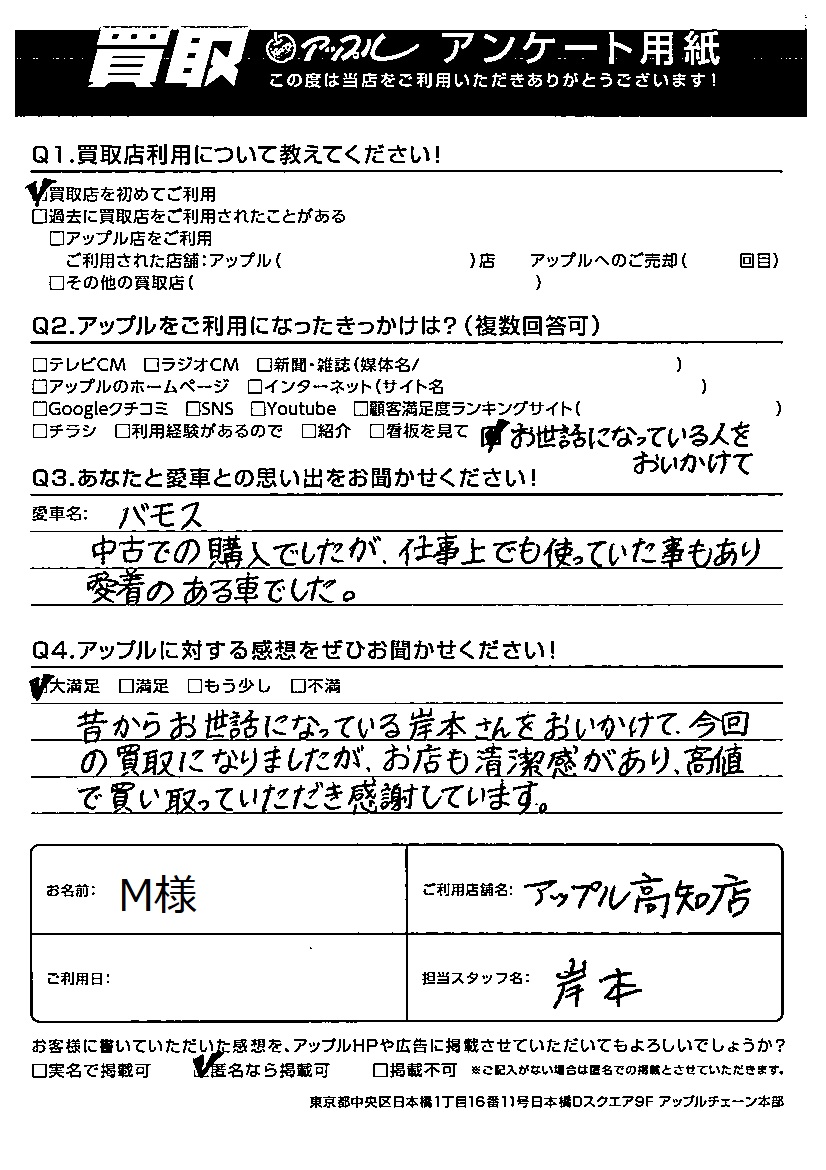 買取 アップル アンケート用紙
この度は当店をご利用いただきありがとうございます!
Q1.買取店利用について教えてください!
☑買取店を初めてご利用
□過去に買取店をご利用されたことがある
□アップル店をご利用
ご利用された店舗:アップル( )店 アップルへのご売却( 回目)
□その他の買取店( )
Q2.アップルをご利用になったきっかけは?(複数回答可)
□テレビCM □ラジオCM □新聞・雑誌(媒体名/ )
□アップルのホームページ □インターネット(サイト名 )
□Googleクチコミ □SNS □Youtube □顧客満足度ランキングサイト( )
□チラシ □利用経験があるので □紹介 □看板を見て ☑お世話になっている人を
おいかけて
Q3.あなたと愛車との思い出をお聞かせください!
愛車名: バモス
中古での購入でしたが、仕事上でも使っていた事もあり
愛着のある車でした。
Q4.アップルに対する感想をぜひお聞かせください!
☑大満足 □満足 □もう少し □不満
昔からお世話になっている岸本さんをおいかけて、今回
の買取になりましたが、お店も清潔感があり、高値
で買い取っていただき感謝しています。
お名前: M様 ご利用店舗名: アップル高知店
ご利用日: 担当スタッフ名: 岸本
お客様に書いていただいた感想を、アップルHPや広告に掲載させていただいてもよろしいでしょうか?
□実名で掲載可 ☑匿名なら掲載可 □掲載不可 ※ご記入がない場合は匿名での掲載とさせていただきます。
東京都中央区日本橋1丁目16番11号日本橋Dスクエア9F アップルチェーン本部